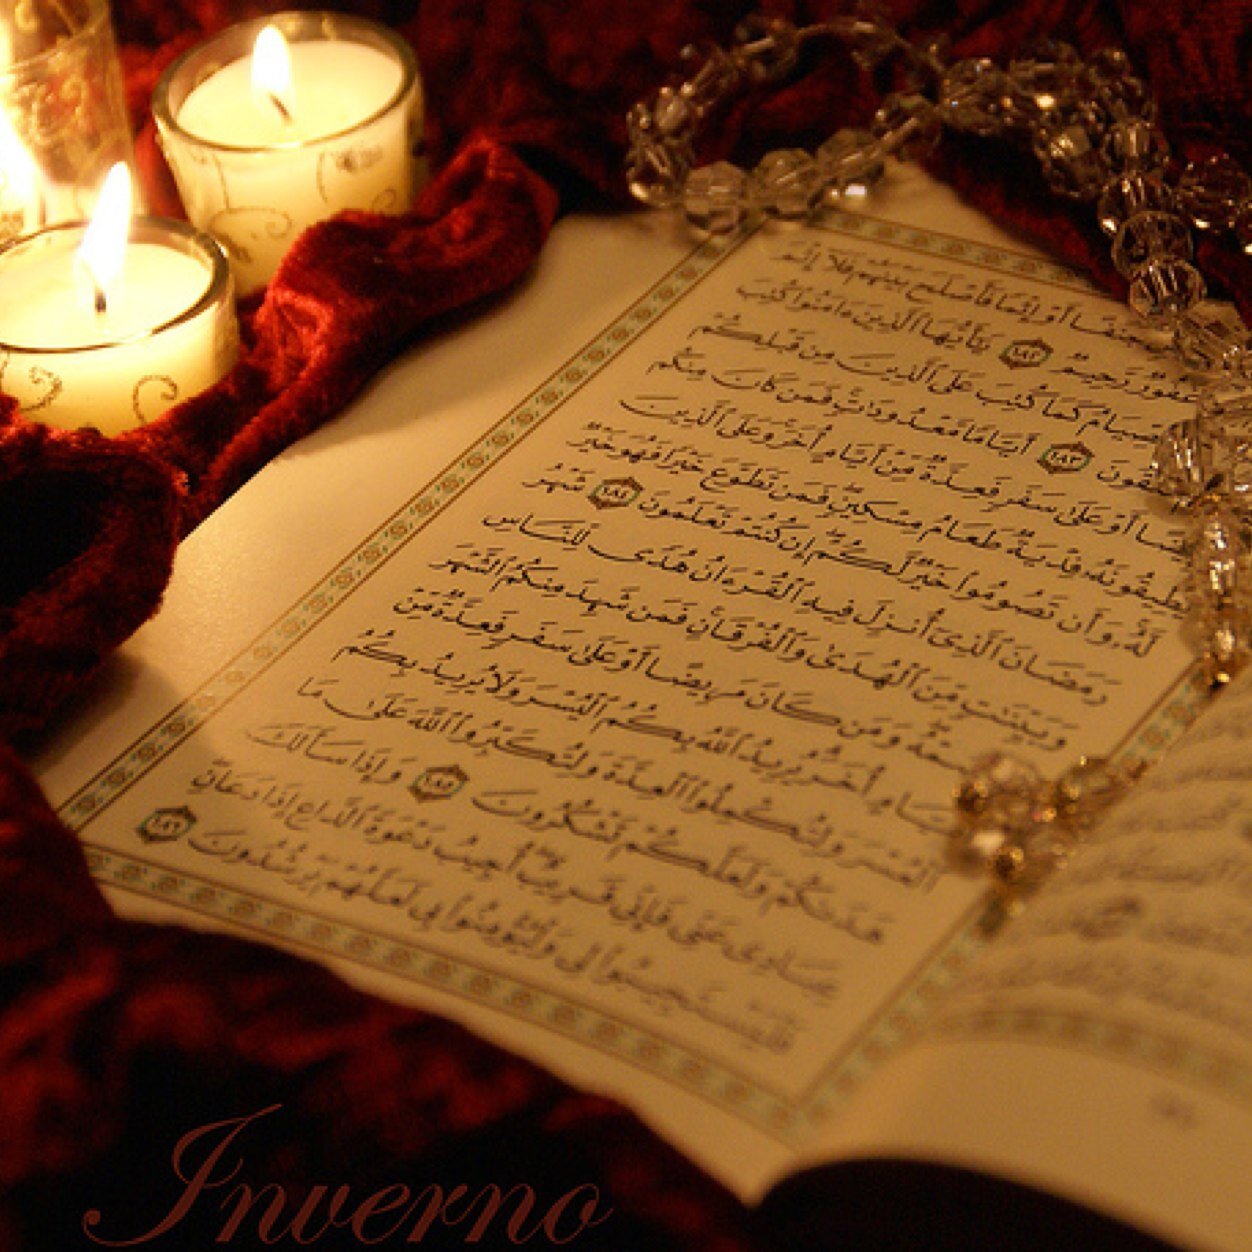 جَنَفًا أَوْ إِثْمًا فَأَصْلَحَ بَيْنَهُمْ فَلَا إِثْمَ
غَفُورٌ رَّحِيمٌ ١٨٢ يَٰٓأَيُّهَا ٱلَّذِينَ ءَامَنُوا۟ كُتِبَ
ٱلصِّيَامُ كَمَا كُتِبَ عَلَى ٱلَّذِينَ مِن قَبْلِكُمْ
تَتَّقُونَ ١٨٣ أَيَّامًا مَّعْدُودَٰتٍ فَمَن كَانَ مِنكُم
مَّرِيضًا أَوْ عَلَىٰ سَفَرٍ فَعِدَّةٌ مِّنْ أَيَّامٍ أُخَرَ وَعَلَى ٱلَّذِينَ
يُطِيقُونَهُۥ فِدْيَةٌ طَعَامُ مِسْكِينٍ فَمَن تَطَوَّعَ خَيْرًا فَهُوَ خَيْرٌ
لَّهُۥ وَأَن تَصُومُوا۟ خَيْرٌ لَّكُمْ إِن كُنتُمْ تَعْلَمُونَ ١٨٤ شَهْرُ
رَمَضَانَ ٱلَّذِىٓ أُنزِلَ فِيهِ ٱلْقُرْءَانُ هُدًى لِّلنَّاسِ
وَبَيِّنَٰتٍ مِّنَ ٱلْهُدَىٰ وَٱلْفُرْقَانِ فَمَن شَهِدَ مِنكُمُ ٱلشَّهْرَ
فَلْيَصُمْهُ وَمَن كَانَ مَرِيضًا أَوْ عَلَىٰ سَفَرٍ فَعِدَّةٌ مِّنْ
أَيَّامٍ أُخَرَ يُرِيدُ ٱللَّهُ بِكُمُ ٱلْيُسْرَ وَلَا يُرِيدُ بِكُمُ
ٱلْعُسْرَ وَلِتُكْمِلُوا۟ ٱلْعِدَّةَ وَلِتُكَبِّرُوا۟ ٱللَّهَ عَلَىٰ مَا
هَدَىٰكُمْ وَلَعَلَّكُمْ تَشْكُرُونَ ١٨٥ وَإِذَا سَأَلَكَ
عِبَادِى عَنِّى فَإِنِّى قَرِيبٌ أُجِيبُ دَعْوَةَ ٱلدَّاعِ إِذَا دَعَانِ
فَلْيَسْتَجِيبُوا۟ لِى وَلْيُؤْمِنُوا۟ بِى لَعَلَّهُمْ يَرْشُدُونَ ١٨٦
Inverno